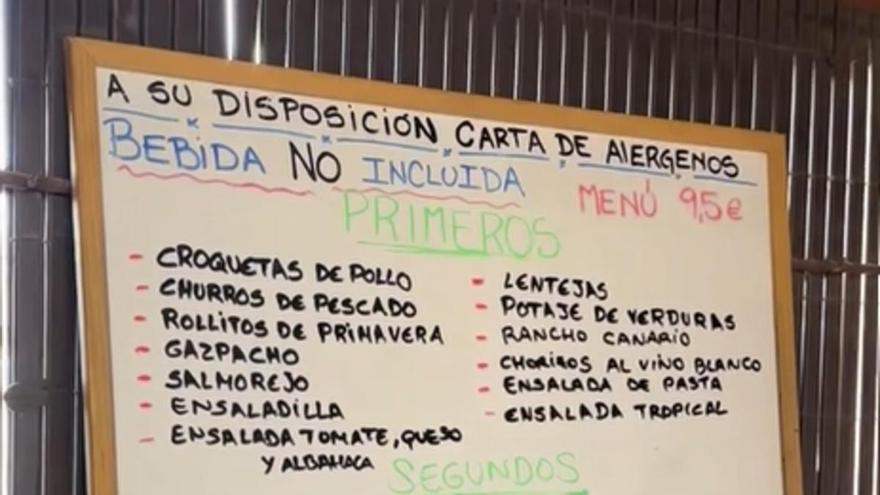 A SU DISPOSICIÓN CARTA DE AlERGENOS
BEBiDA NO INCLUIDA
MENÚ 9,5€
PRIMEROS
- CROQUETAS DE POLLO
- CHURROS DE PESCADO
- ROLLITOS DE PRIMAVERA
- GAZPACHO
- SALMOREJO
- ENSALADILLA
- ENSALADA TOMATE, QUESO
Y ALBAHACA
- LENTEJAS
- POTAJE DE VERDURAS
- RANCHO CANARIO
- CHORIROS AL VINO BLANCO
- ENSALADA DE PASTA
- ENSALADA TROPICAL
SEGUNDOS